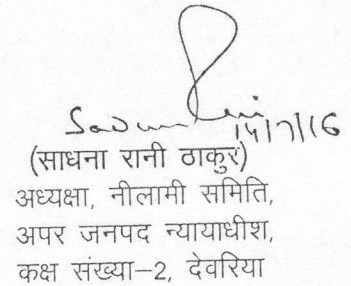 14/7/16
(साधना रानी ठाकुर)
अध्यक्षा, नीलामी समिति,
अपर जनपद न्यायाधीश,
कक्ष संख्या–2, देवरिया